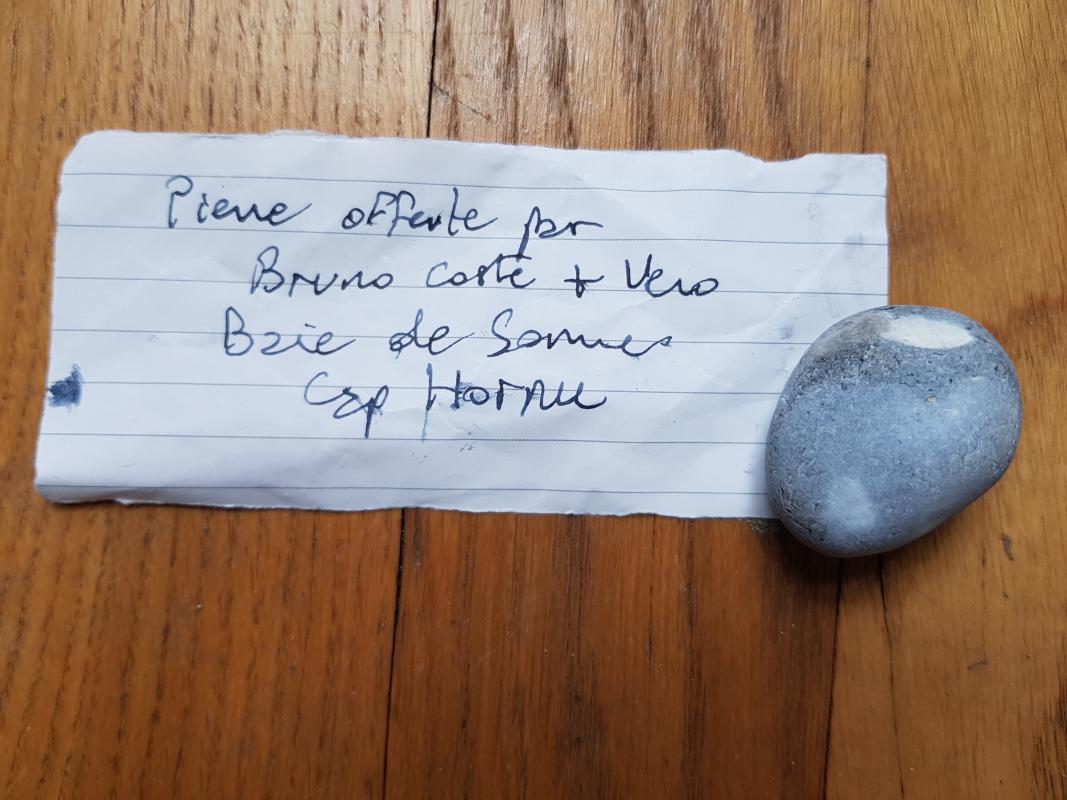 Pierre offerte par
Bruno Coste + Vero
Baie de Somme
Cap Hornu